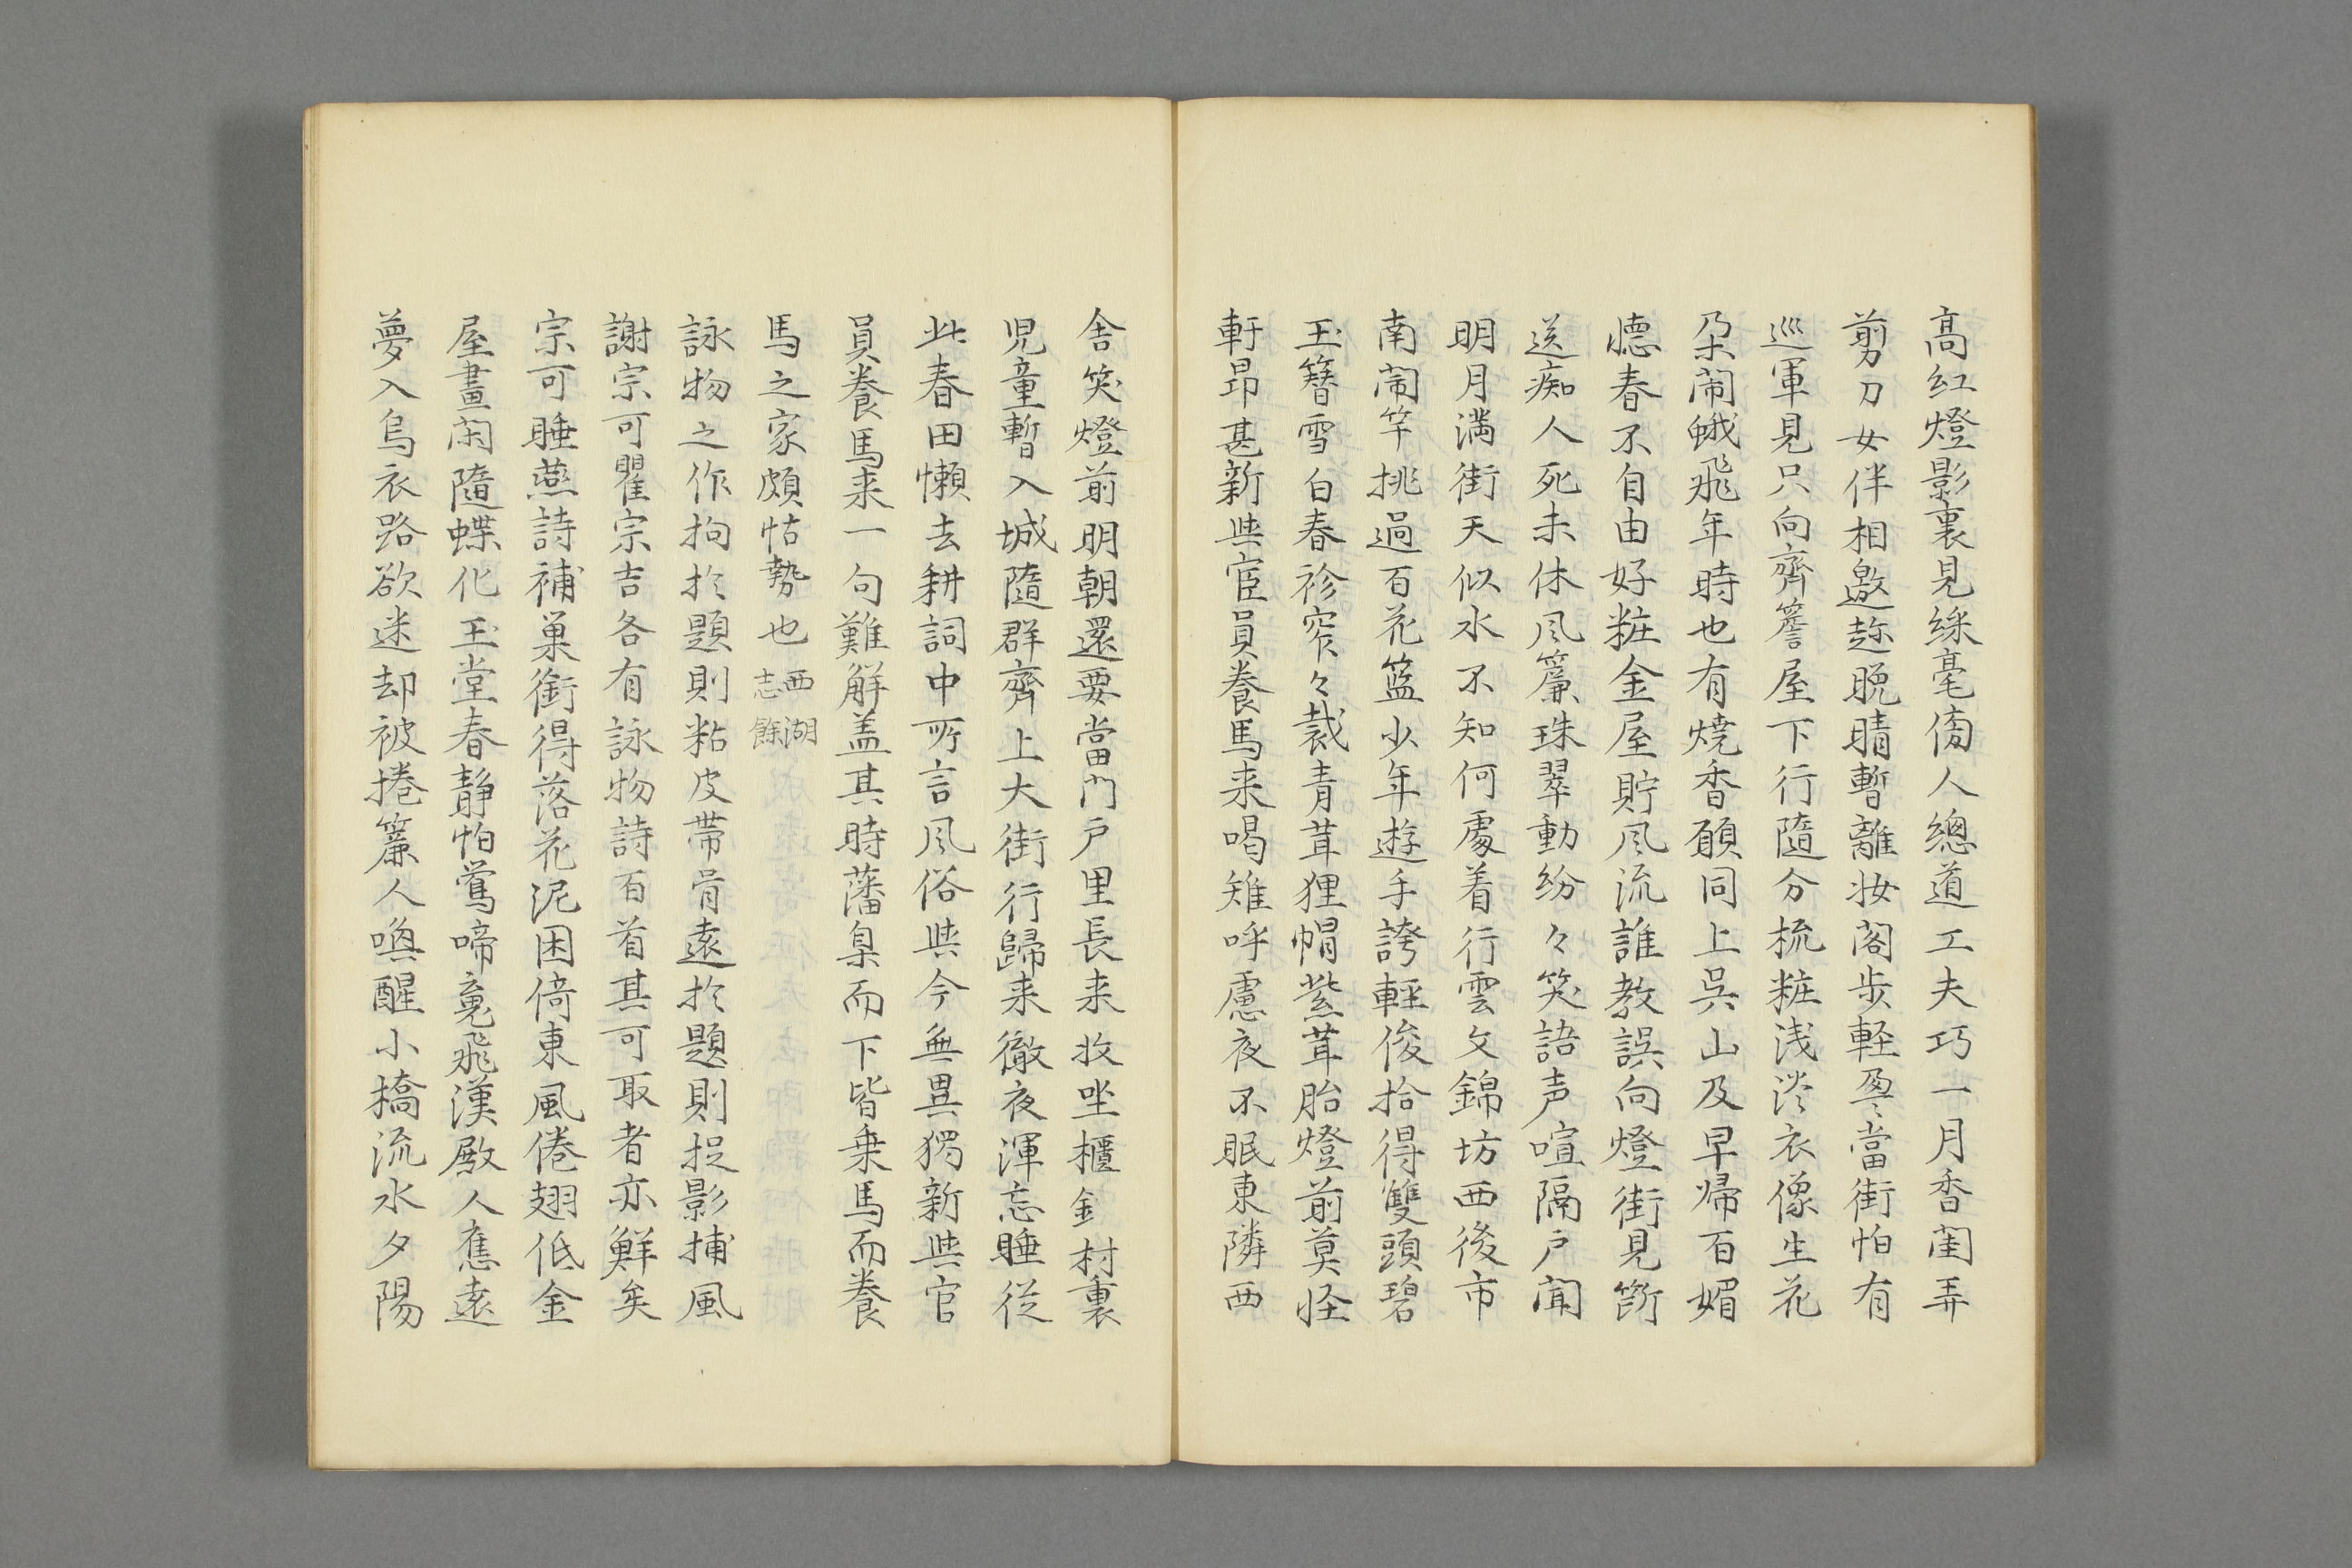 高紅燈影裏見綵毫傍人總道工夫巧一月香閨弄
剪刀女伴相邀趂晚晴暫離妝閣步軽盈當街怕有
巡軍見只向齊簷屋下行隨分梳粧浅淡衣像生花
朶閙蛾飛年時也有燒香願同上吳山及早帰百媚
聴春不自由好粧金屋貯风流誰教誤向燈街見
送痴人死未休风簾珠翠動紛々笑語声喧隔戸聞
明月満街天似水不知何處着行雲文錦坊西後市
南閙竿挑過百花籃少年遊手誇輕俊拾得雙頭碧
玉簪雪白春衫窄々裁青茸狸帽紫茸胎燈前莫怪
軒昻甚新與宦員養馬来喝雉呼盧夜不眠東隣西
舎笑燈前明朝還要當門戸里長来收坐櫃金村裏
児童暫入城隨群齊上大街行歸来徹夜渾忘睡従
此春田懶去耕詞中所言风俗與今無異獨新與官
員養馬来一句難解盖其時藩臬而下皆乗馬而養
馬之家頗怙勢也西湖志餘
詠物之作拘於題則粘皮帯骨遠於題則捉影捕風
謝宗可瞿宗吉各有詠物詩百首其可取者亦鮮矣
宗可睡燕詩補巢銜得落花泥困倚東風倦翅低金
屋晝閑隨蝶化玉堂春静怕鶯啼䰟飛漢殿人應遠
夢入烏衣路欲迷却被捲簾人喚醒小橋流水夕陽